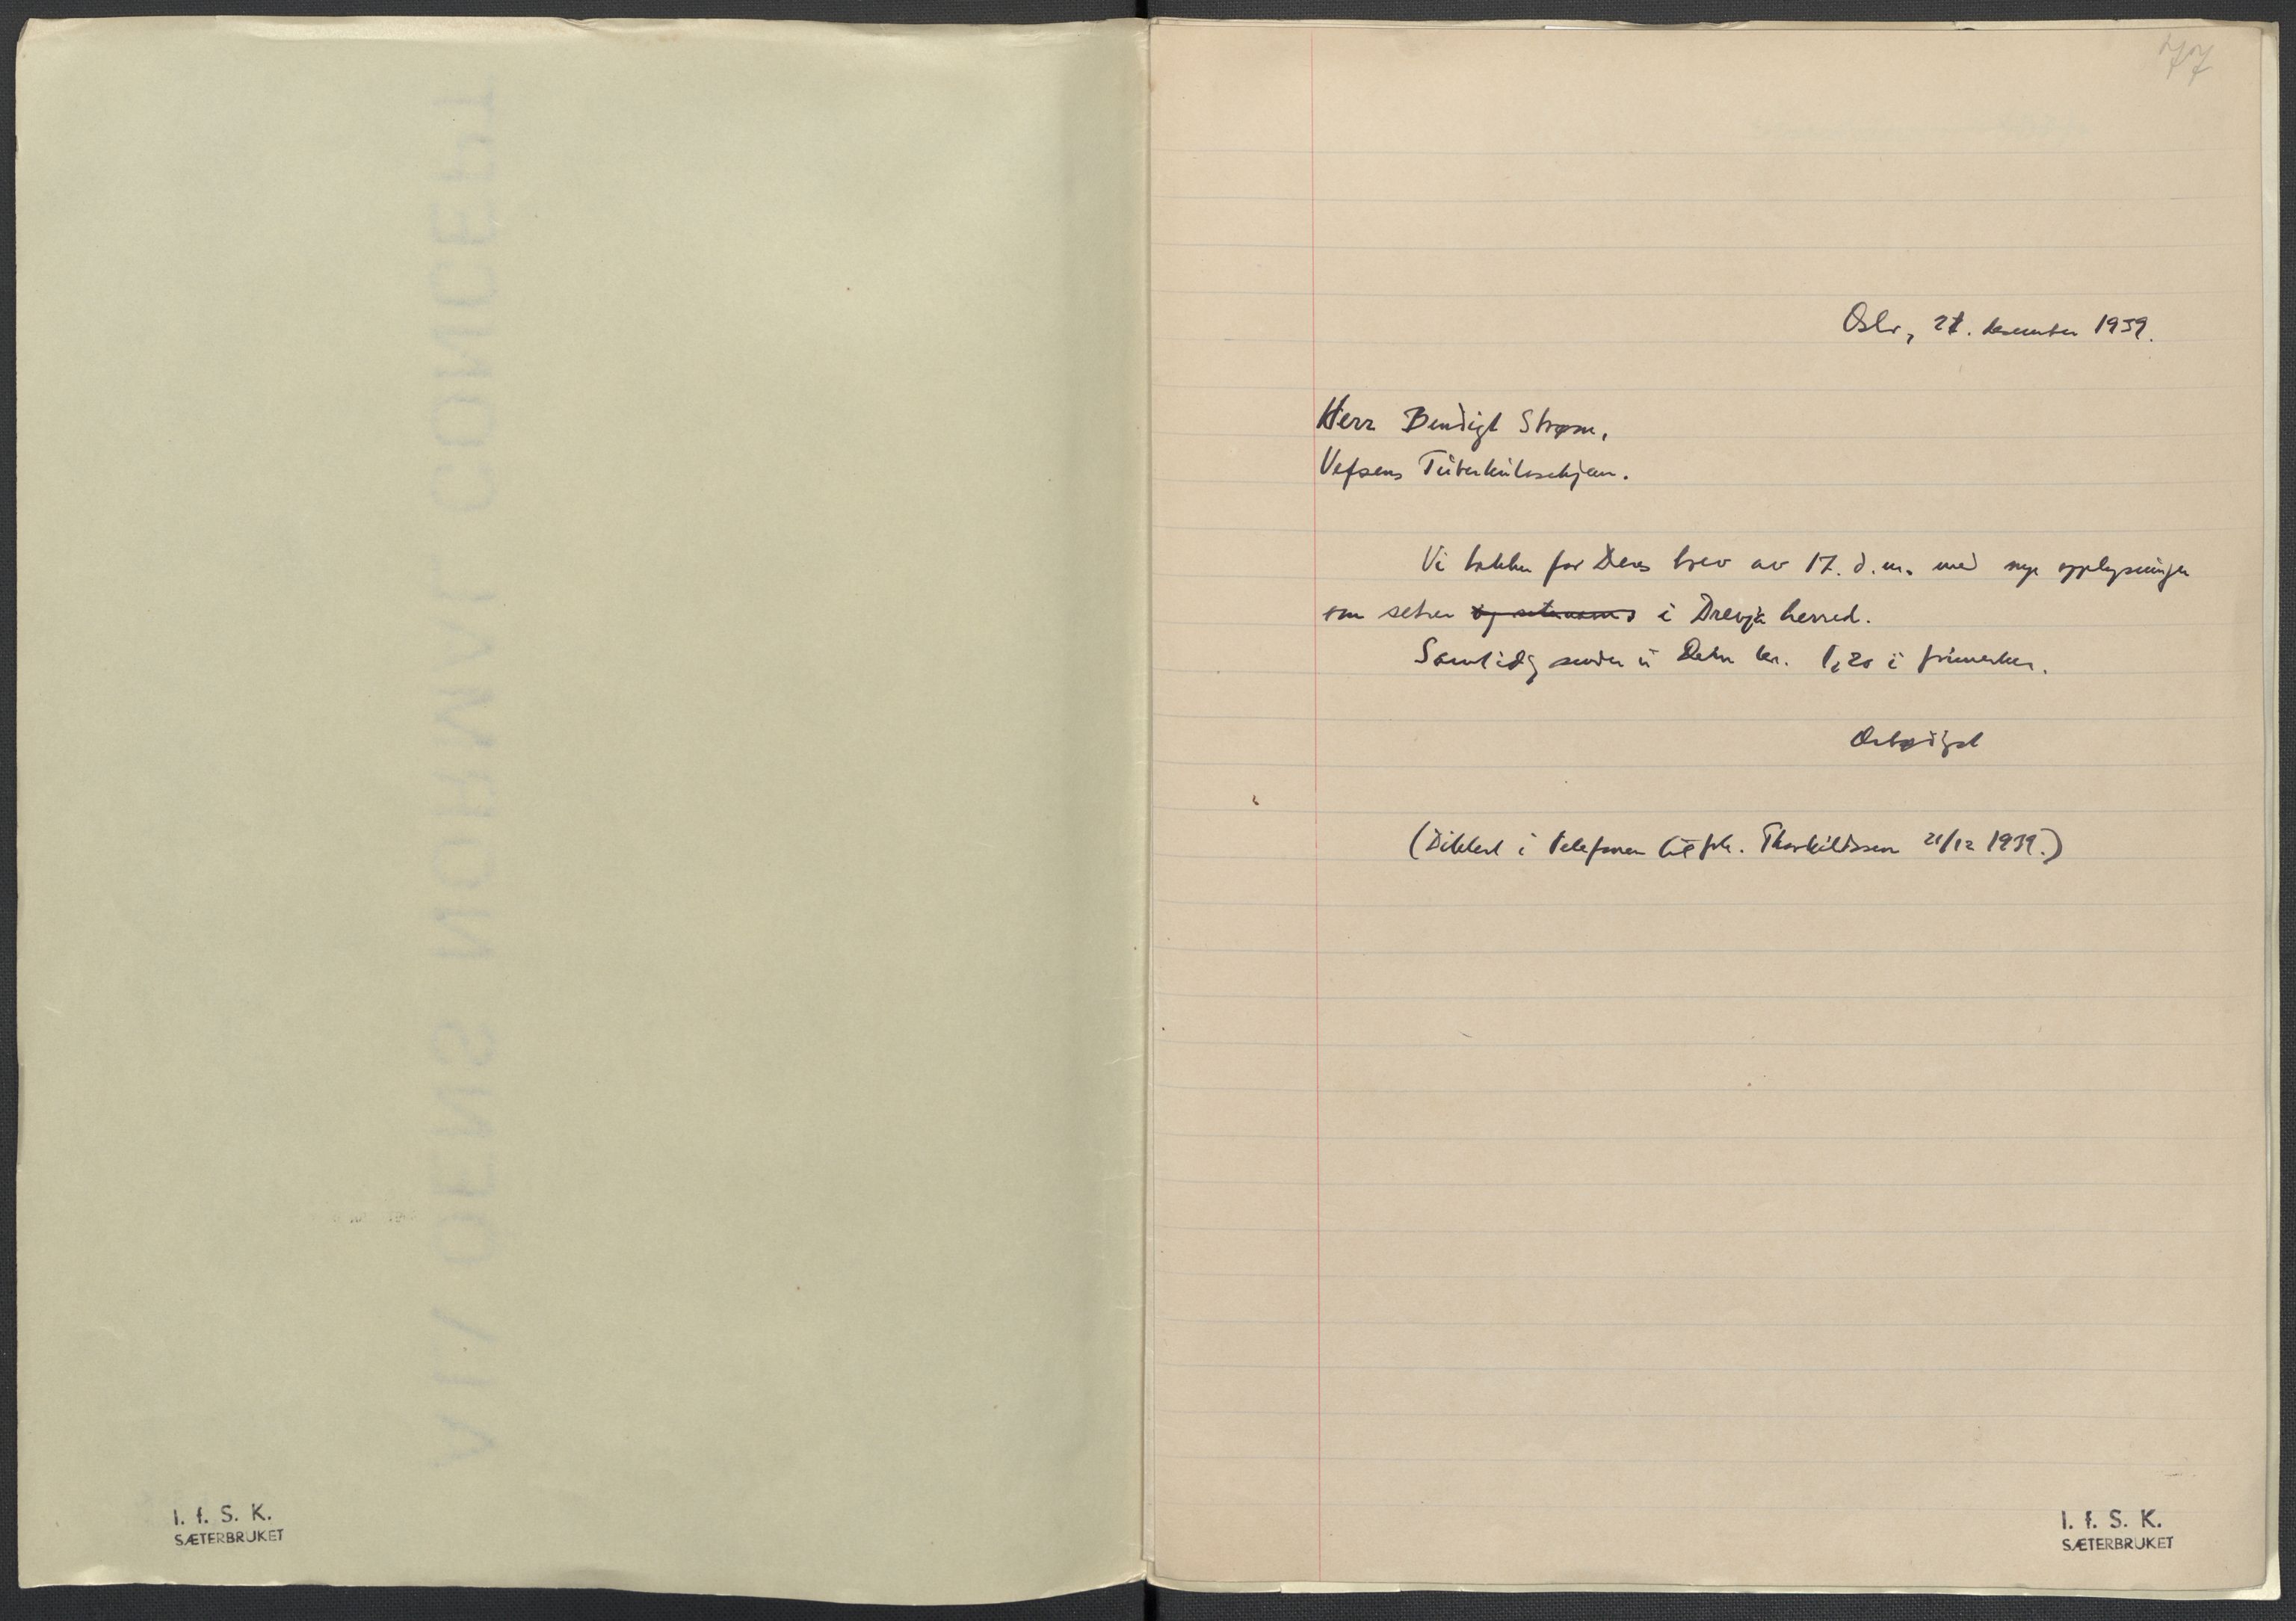 I. f. S. K.
SÆTERBRUKET
77
Oslo, 21. desember 1939.
Herr Bendigt Strøm,
Vefsens Tüberkülosehjem.
Vi takker for Deres brev av 17. d.m. med nye opplysninger
om setrer og seternavn i Drevja herred.
Samtidig sender vi Dem kr. 1,20 i frimerker.
Ærbødigst
(Diktert i telefonen til frk. Thorkildsen 21/12 1939.)
I. f. S. K.
SÆTERBRUKET